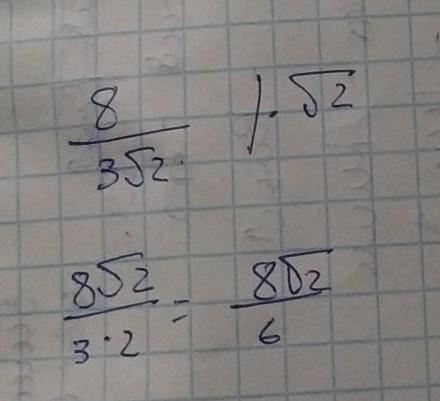 8/(3√2) /·√2
8√2/(3·2) = 8√2/6